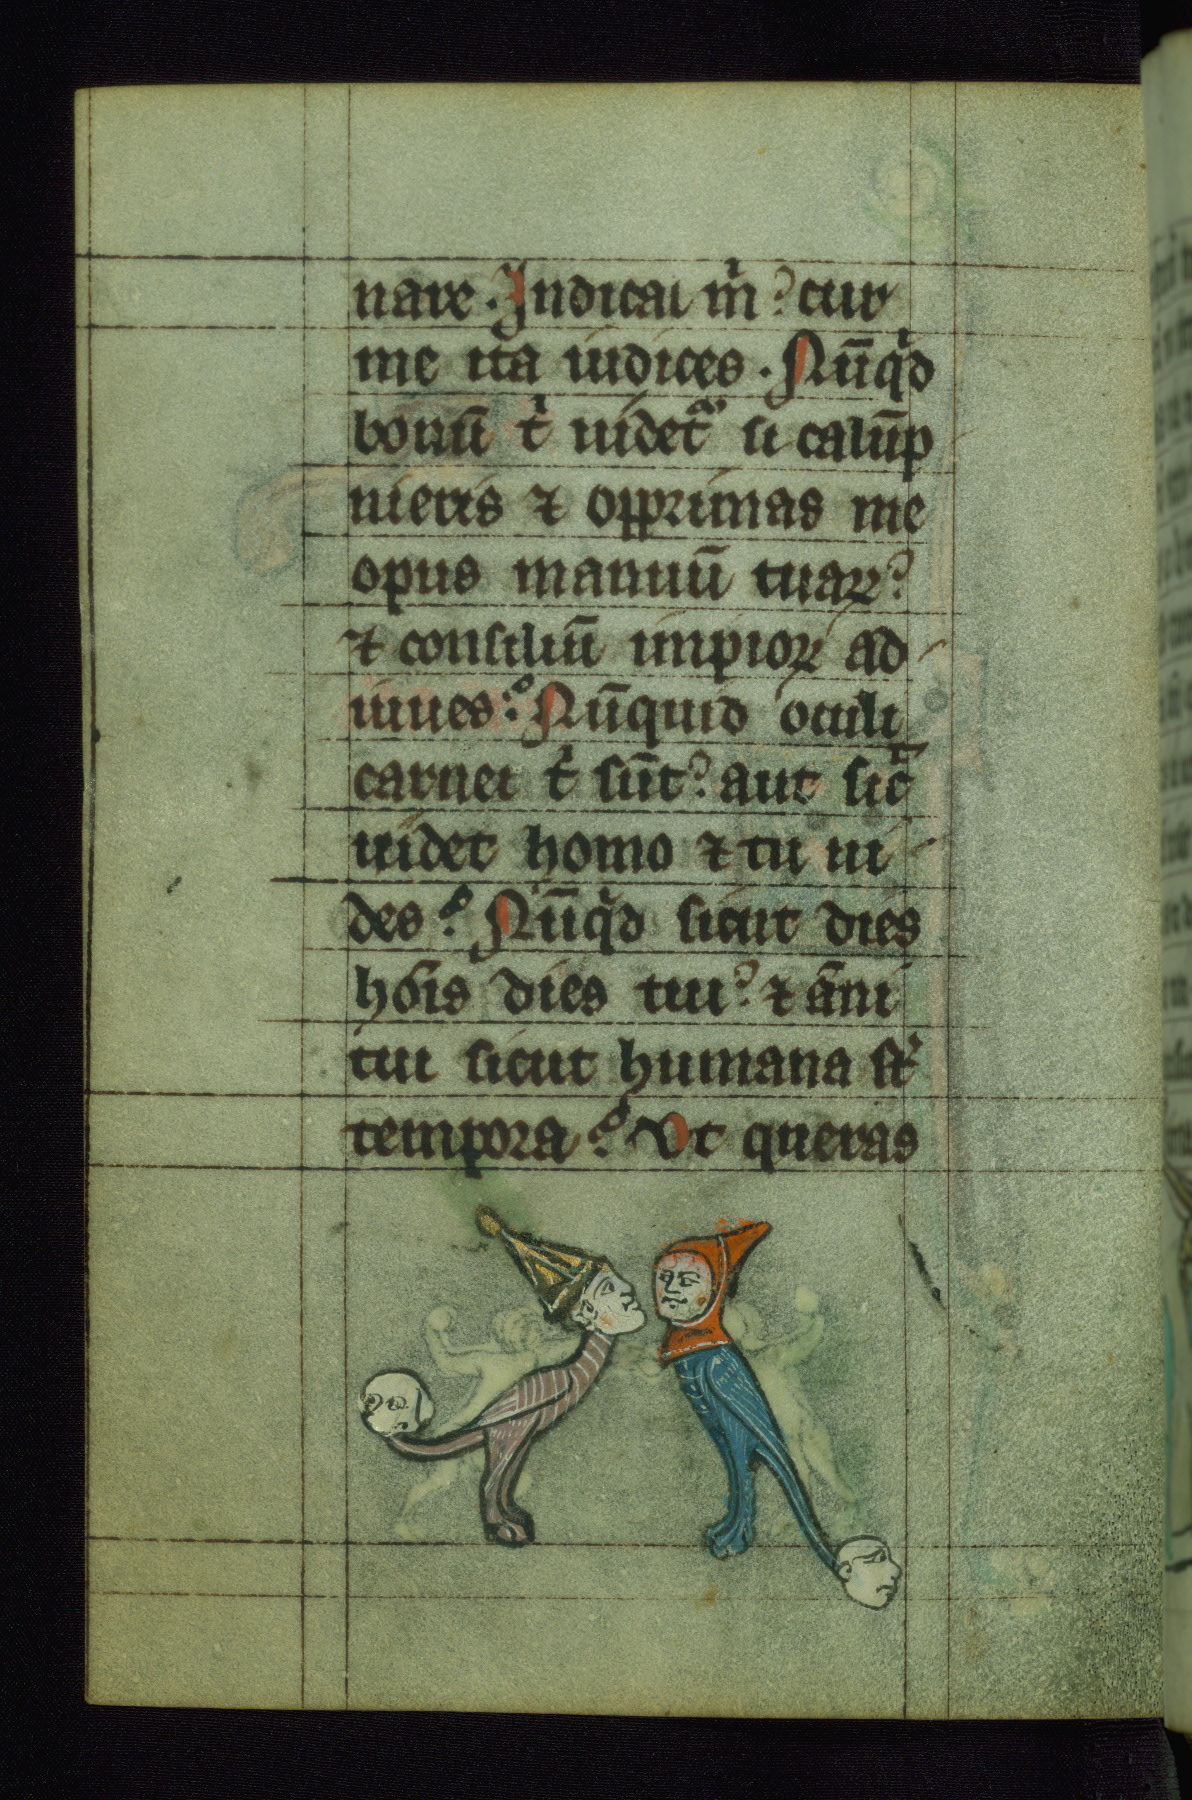 nare. Indicai m̃ı? cur
me ita iudices. Nūqͥd
bonū tͥ uidetᷓ si calūp
nieris ⁊ opprimas me
opus manuū tuaꝝ?
⁊ consiliū impioꝝ ad
iuues? Nūquid oculi
carnei tͥ sūt? aut sic̄
uidet homo ⁊ tu ui
des? Nūqͥd sicut dies
hoı̄s dies tui? ⁊ āni
tui sicut humana st̄
tempora? Ut queras